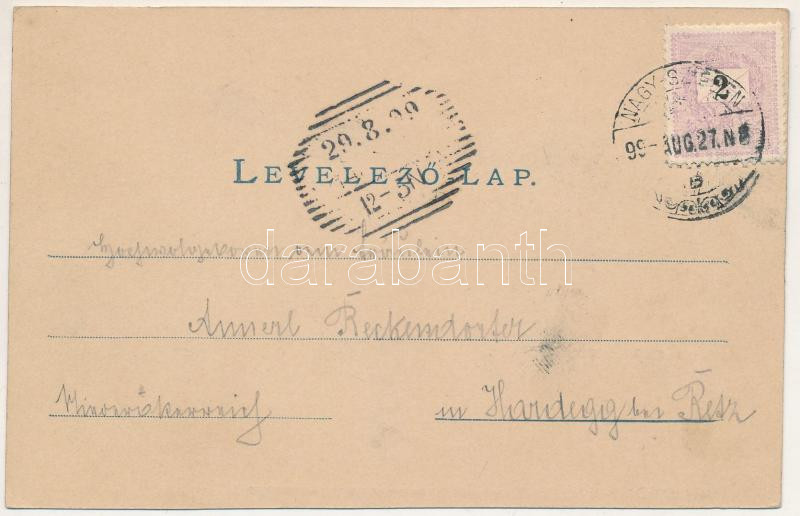 2
NAGY-SZEBEN
99-AUG.27.N8
29.8.99
12-
LEVELEZŐ-LAP.
darabanth
Hochwolgeboren dem Fräulein
Annerl Reckendorfer
Niederösterreich
in Hardegg bei Retz